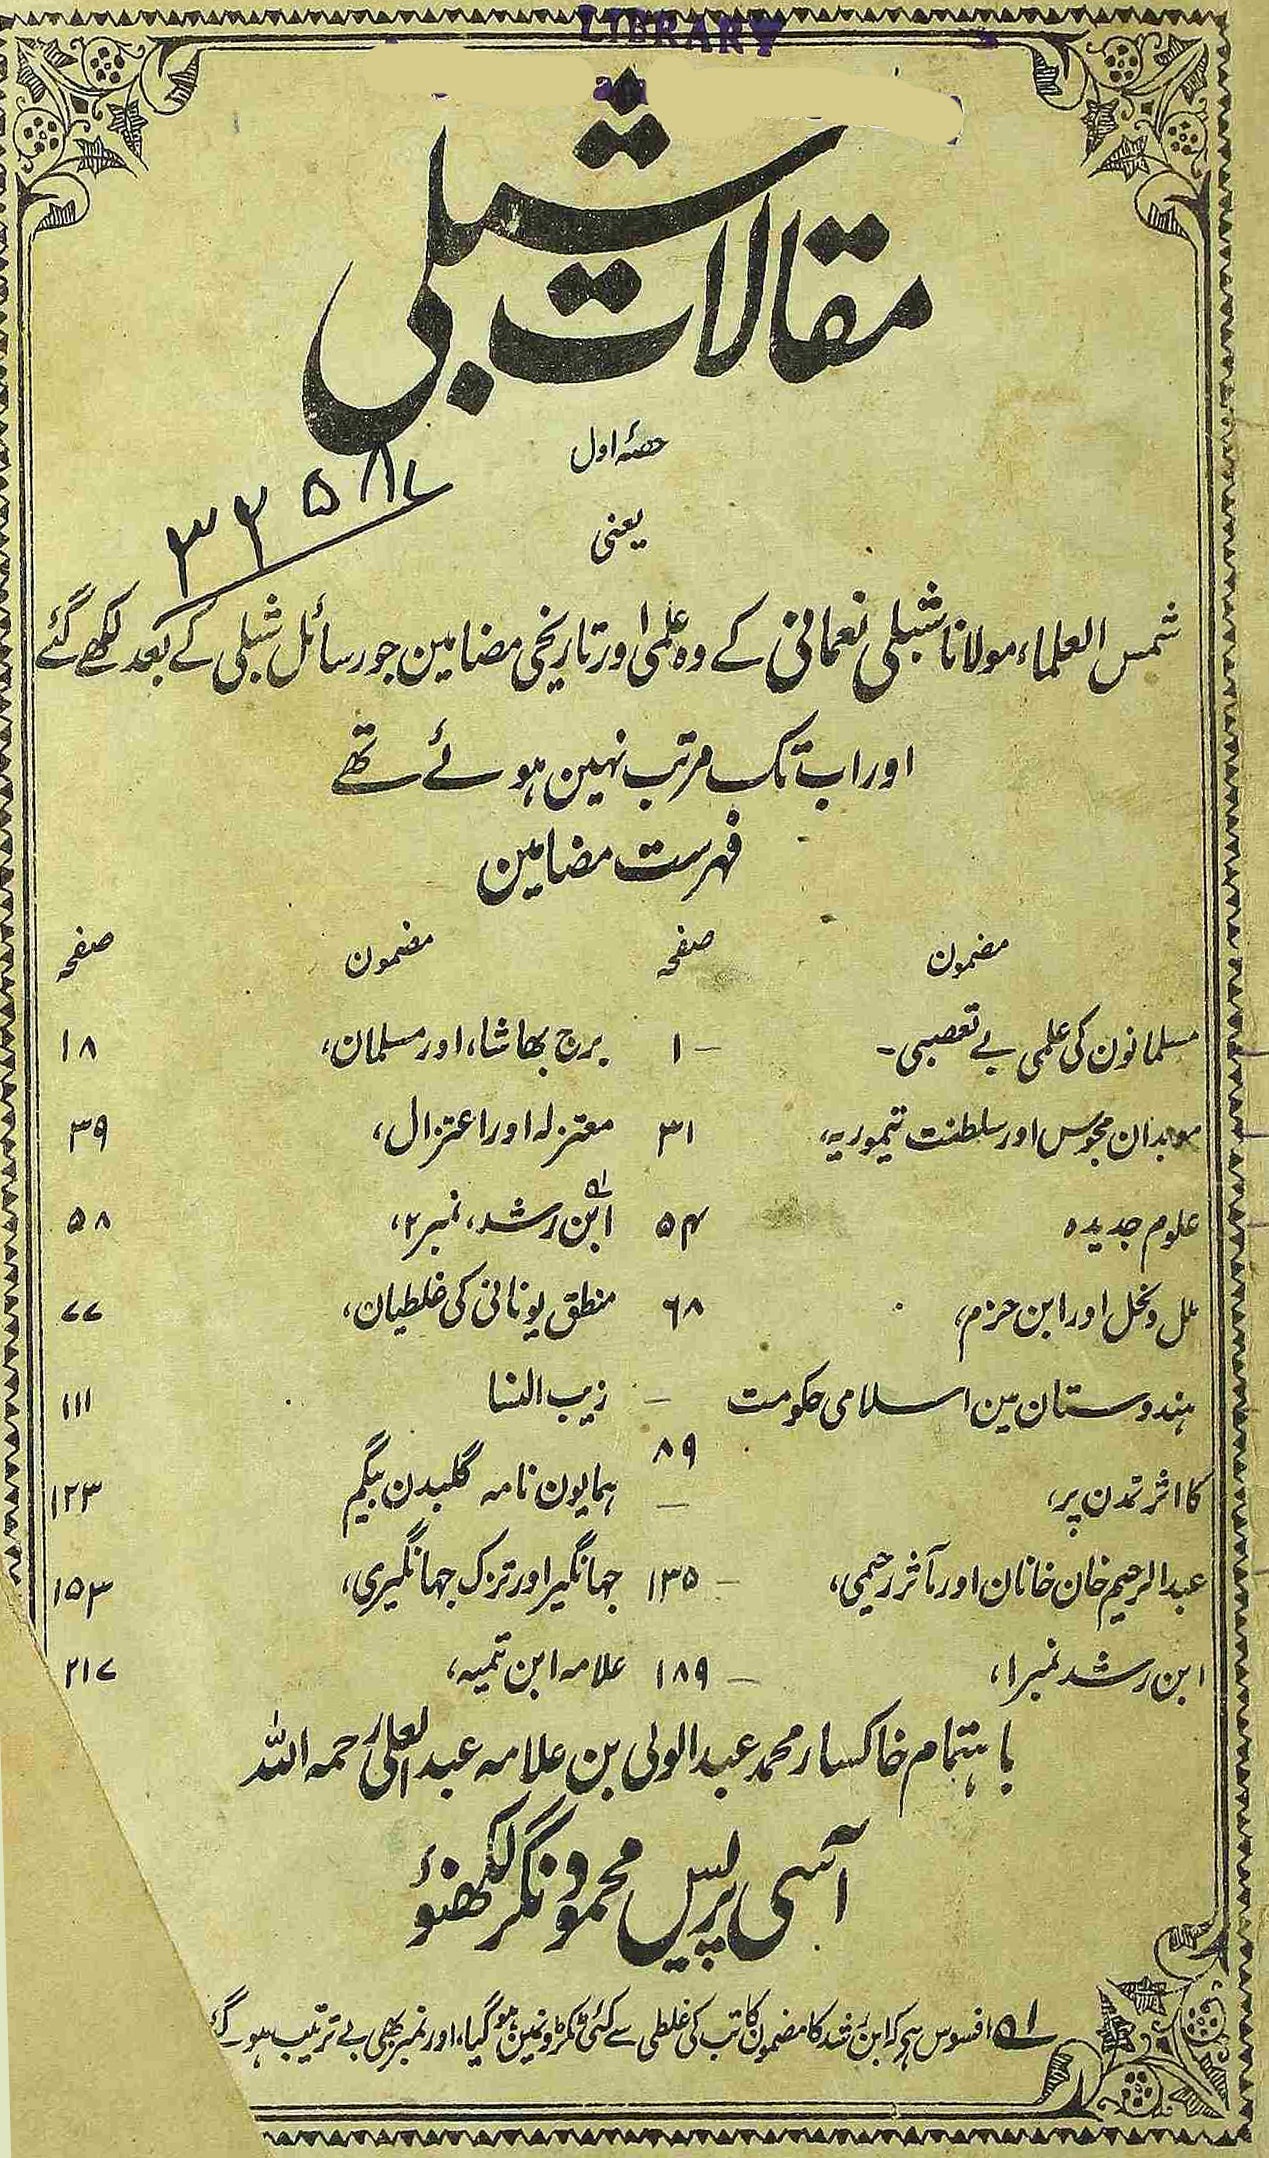 LIBRARY
مقالات شبلی
حصّہ اول
۳۲۵۸۷
یعنی
شمس العلماء مولانا شبلی نعمانی کے وہ علمی اور تاریخی مضامین جو رسائل شبلی کے بعد لکھے گئے
اور اب تک مرتب نہین ہوئے تھے
فہرست مضامین
مضمون صفحہ مضمون صفحہ
مسلمانون کی علمی بے تعصبی۔ ۱ برج بھاشا، اور مسلمان، ۱۸
موبدان مجوس اور سلطنت تیموریہ، ۳۱ معتزلہ اور اعتزال، ۳۹
علوم جدیدہ ۵۴ ابن رشد، نمبر ۲، ۵۸
ملل و نحل اور ابن حزم، ۶۸ منطق یونانی کی غلطیان، ۷۷
ہندوستان مین اسلامی حکومت زیب النسا ۱۱۱
کا اثر تمدن پر، ۸۹ ہمایون نامہ گلبدن بیگم ۱۲۳
عبد الرحیم خان خانان اور مآثر رحیمی، ۱۳۵ جہانگیر اور تزک جہانگیری، ۱۵۳
ابن رشد نمبر ۱، ۱۸۹ علامہ ابن تیمیہ، ۲۱۷
باہتمام خاکسار محمد عبد الولی بن علامہ عبد العلی رحمہ اللہ
آسی پریس محمود نگر لکھنؤ
لہ افسوس ہے کہ ابن رشد کا مضمون کاتب کی غلطی سے کئی ٹکڑونمین ہو گیا، اور نمبر بھی بے ترتیب ہو گئے